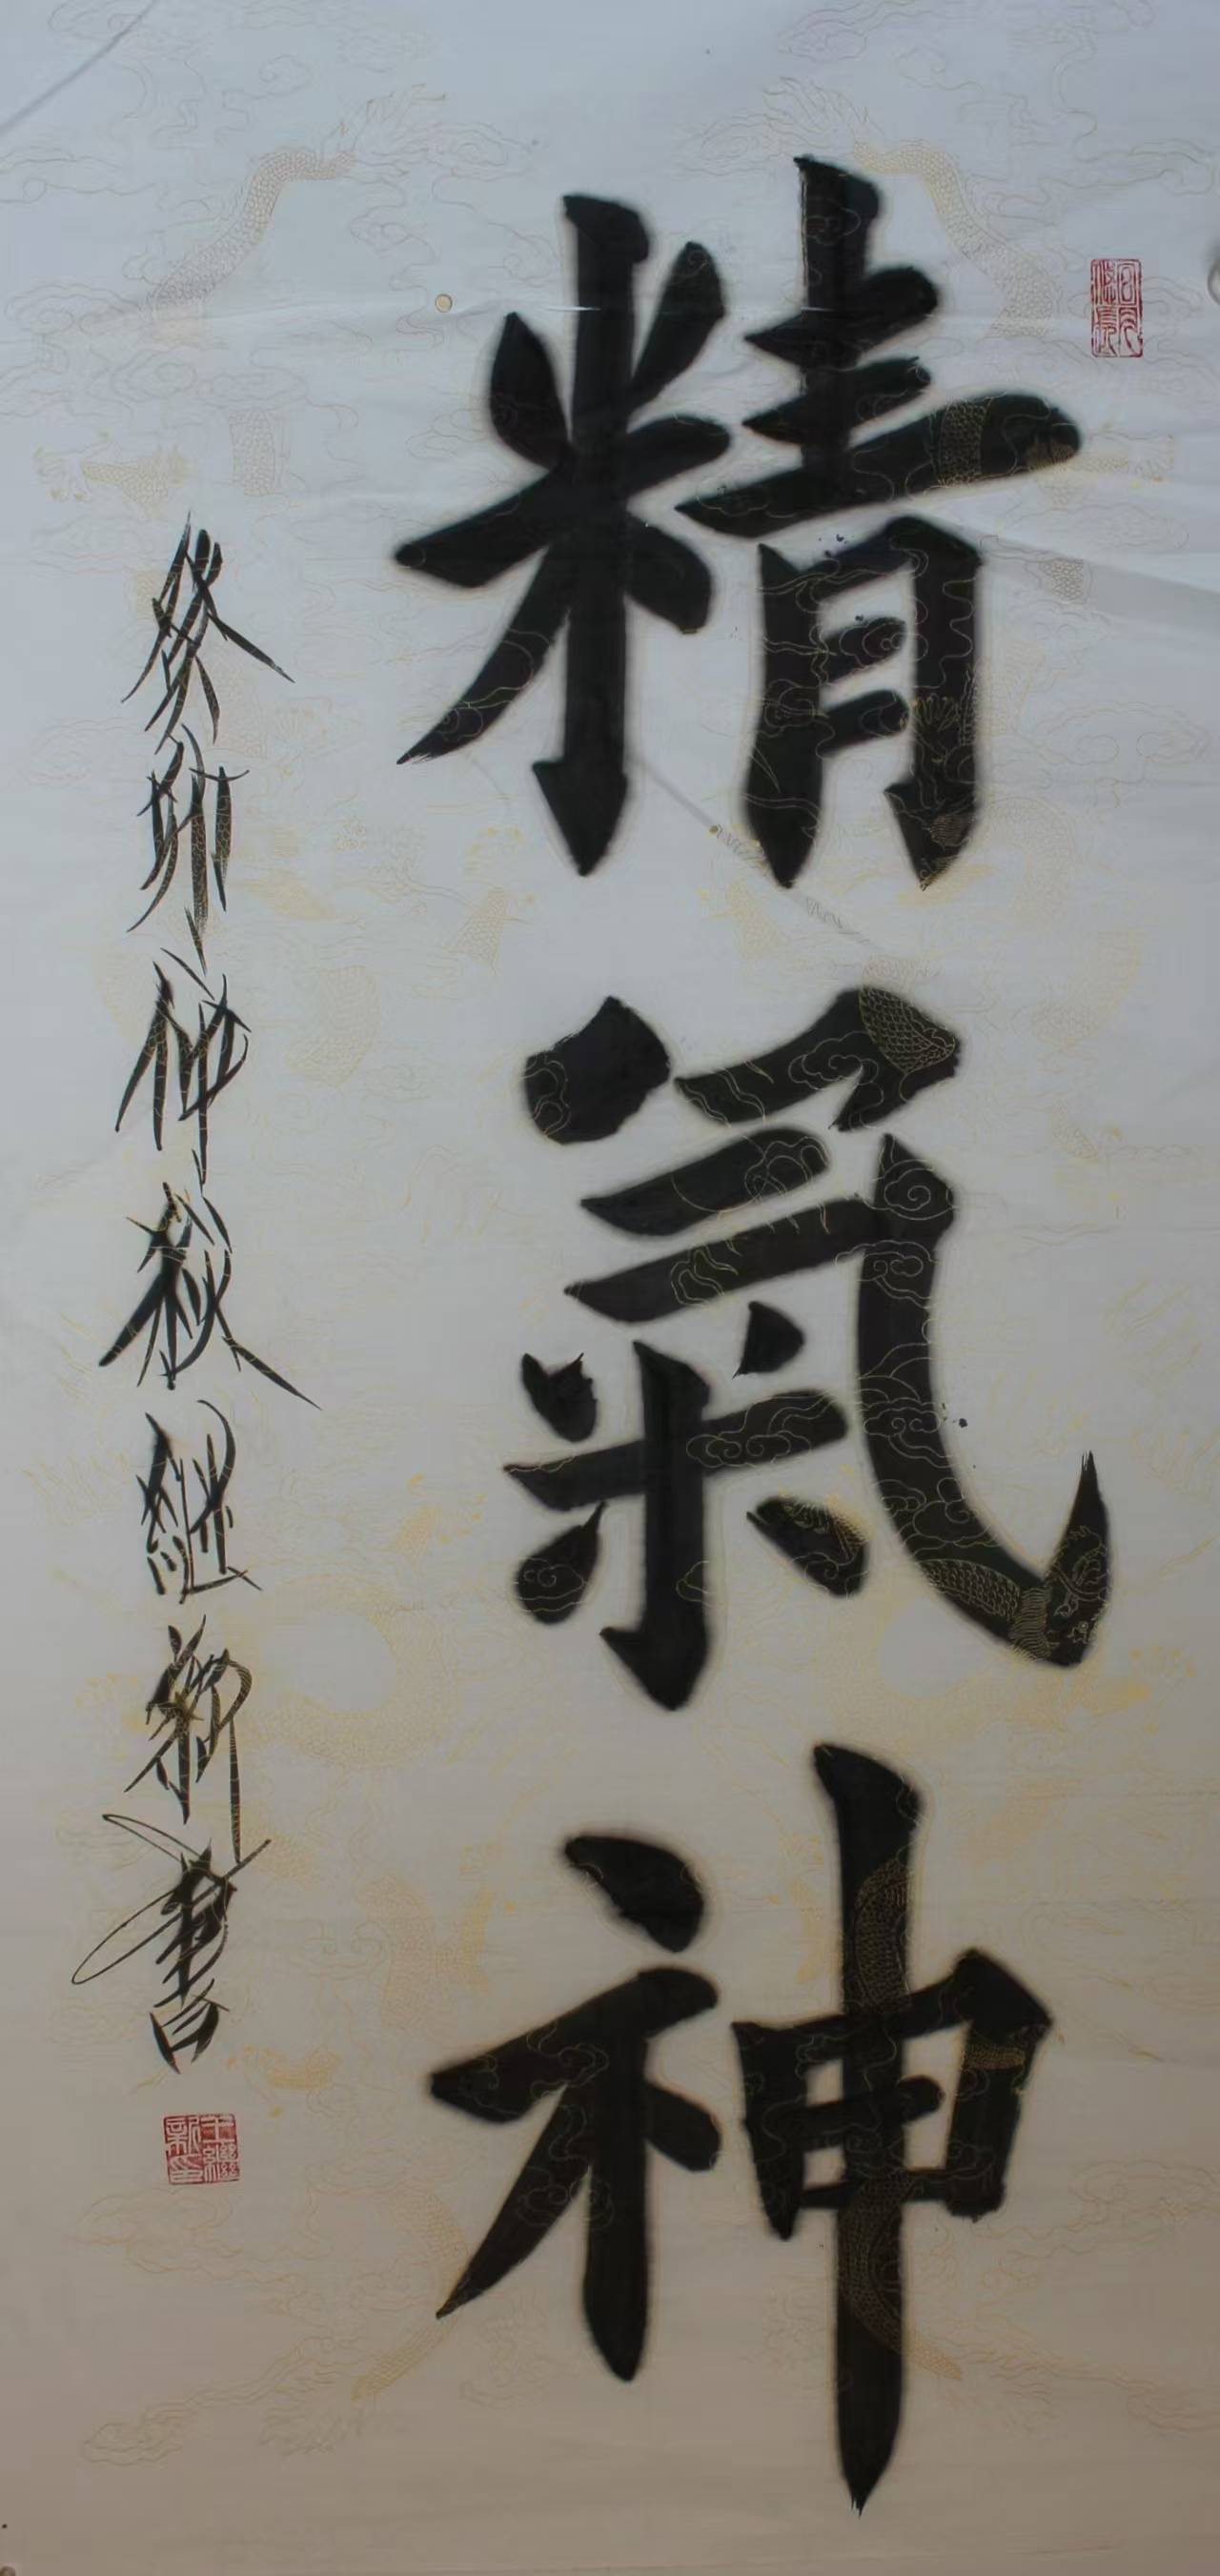 精氣神
癸卯仲秋继新書
王繼新印